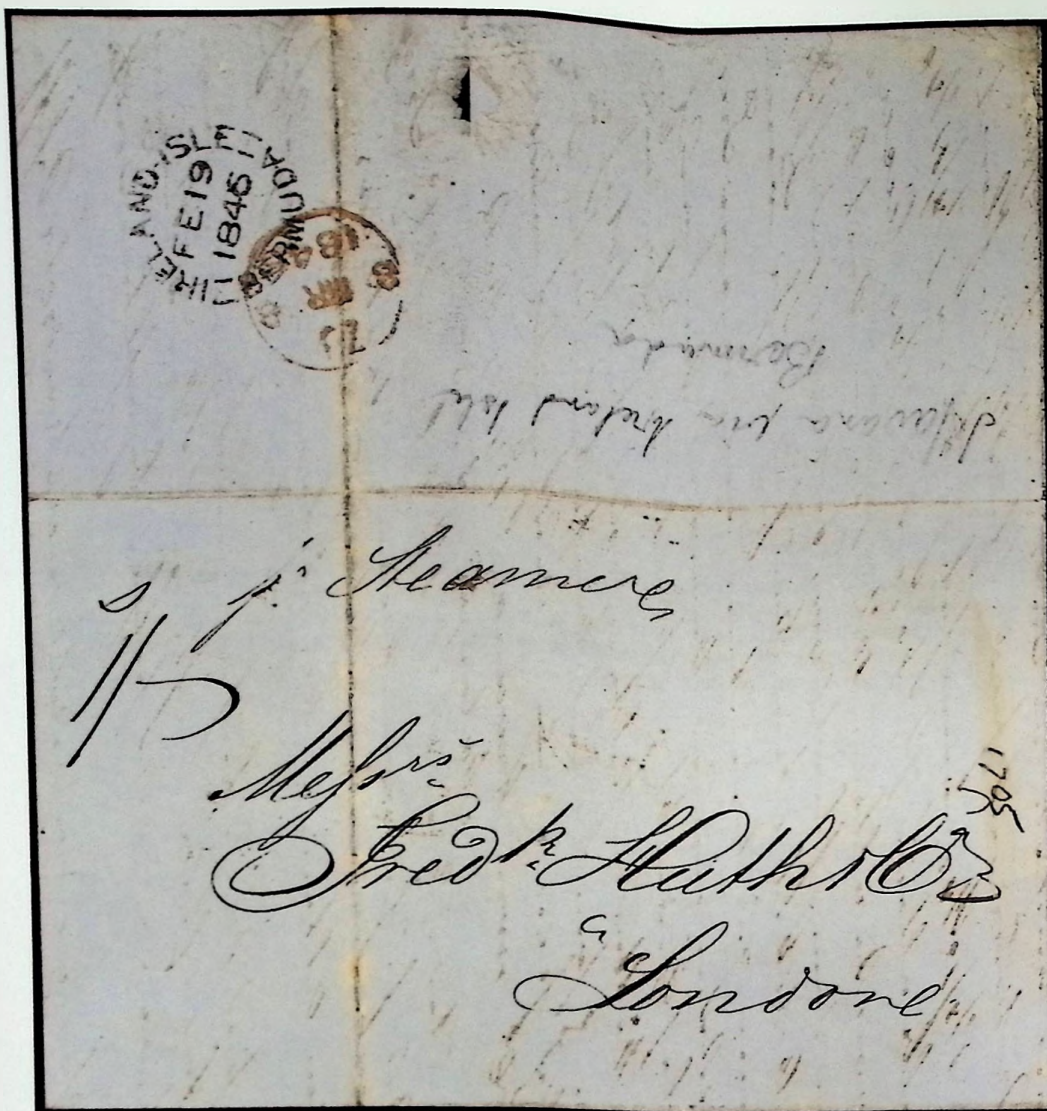 IRELAND-ISLE
BERMUDA
FE 19
1846
MR
184
Havana via Ireland Isle
Bermuda
pr Steamer
Messrs
Fredk Huth & Co
a
London
1705